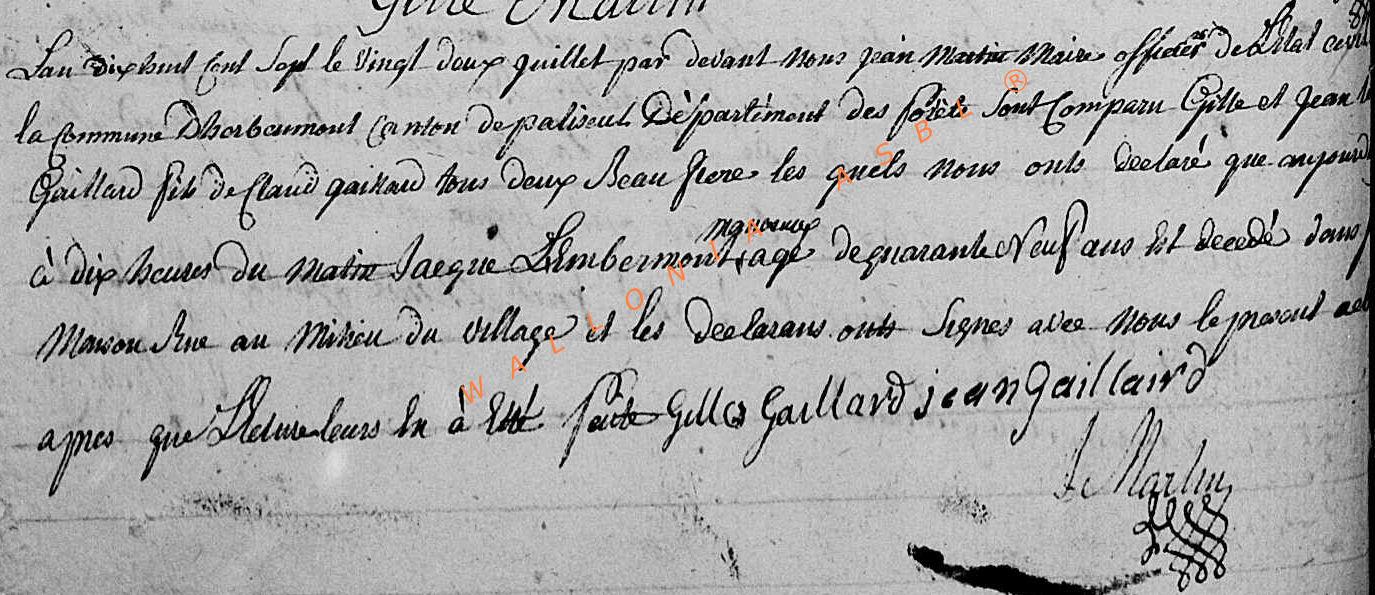 Gille Martin
Lan dix huit Cent Sept le vingt deux juillet par devant nous jean Martin Maire officier de L'Etat civil
la Commune Dherbeumont Canton de paliseul Département des forêts sont Comparu Gille et jean
Gaillard fils de Claud gaillard tous deux Beau frere les quels nous onts declaré que aujourd
à dix heures du matin Jacque Limbermont, agé de quarante Neuf ans Est decedé dans
Maison Rue au Milieu du village et les declarans onts Signes avec Nous le present
apres que Lecture leurs En à Eté faite Gilles Gaillard jean Gaillaird
J Martin
WALLONIA ASBL ®